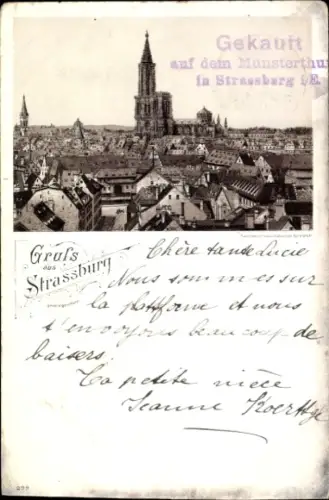 Gekauft
auf dem Münsterthu
in Strassburg i/E.
Gruss
aus
Strassburg
Chère tante Lucie
Nous sommes sur
la plattforme et nous
t'envoyons beaucoup de
baisers.
Ta petite nièce
Jeanne